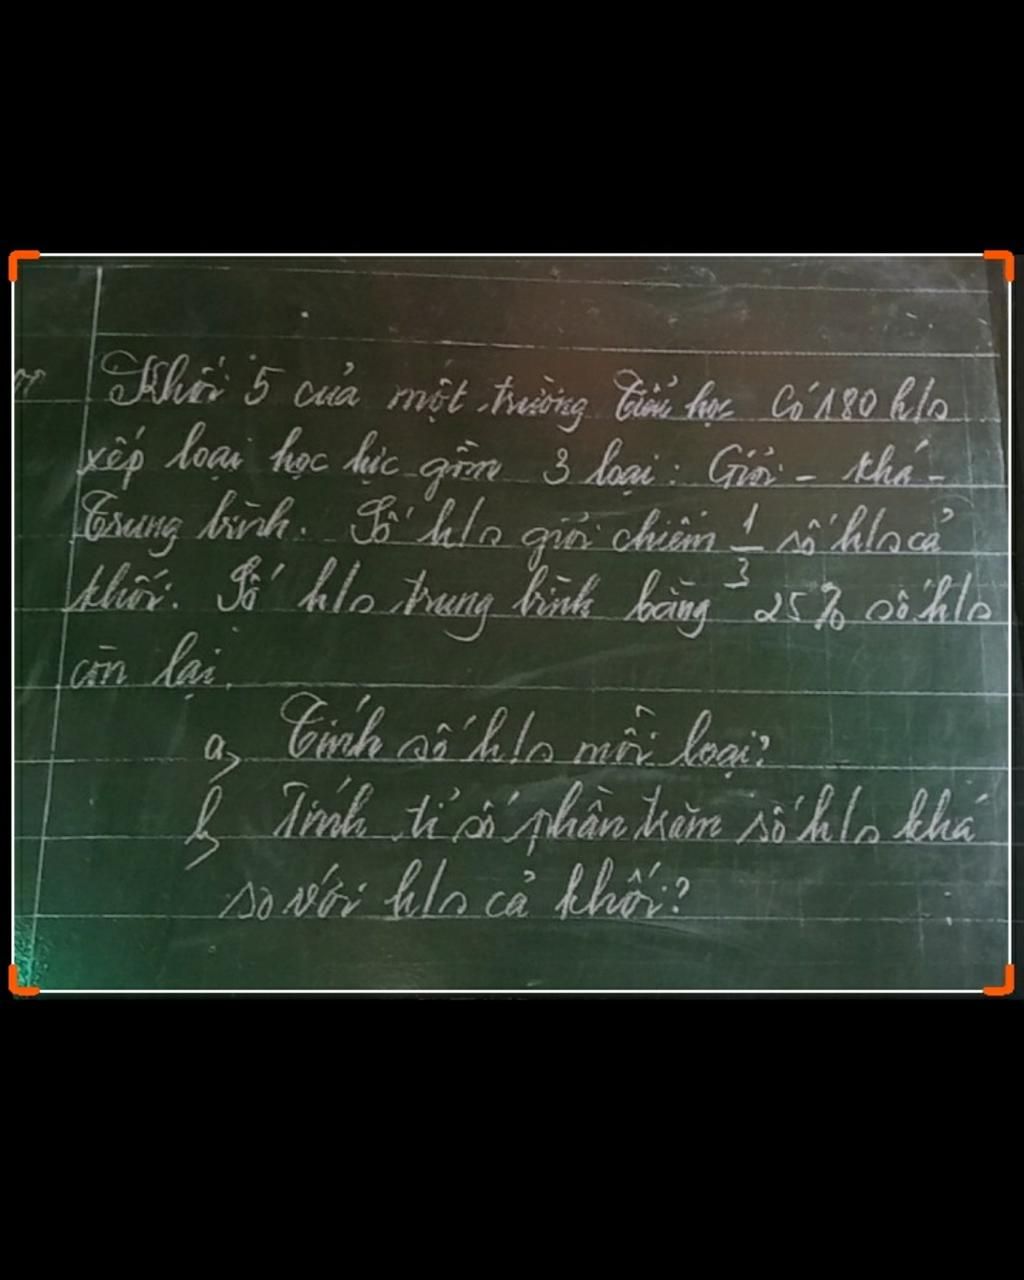 Khối 5 của một trường Tiểu học có 180 h/s
xếp loại học lực gồm 3 loại: Giỏi - khá -
Trung bình. Số h/s giỏi chiếm 1/3 số h/s cả
khối. Số h/s trung bình bằng 25% số h/s
còn lại.
a, Tính số h/s mỗi loại?
b, Tính tỉ số phần trăm số h/s khá
so với h/s cả khối?